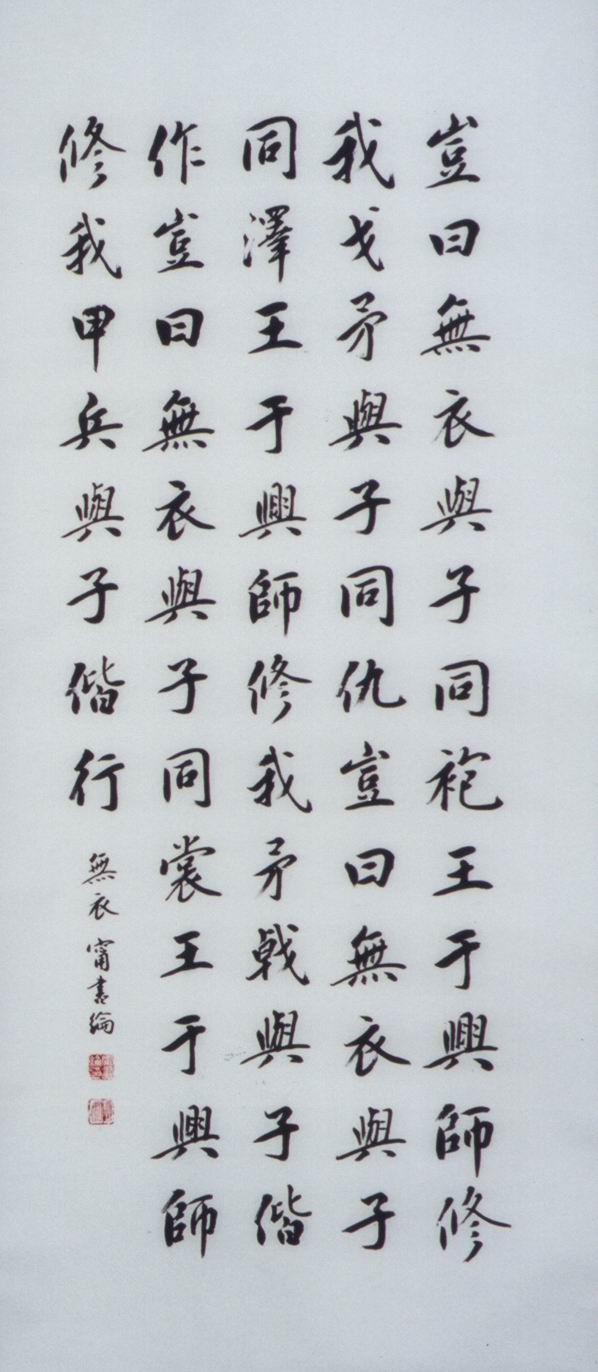 豈曰無衣與子同袍王于興師修
我戈矛與子同仇豈曰無衣與子
同澤王于興師修我矛戟與子偕
作豈曰無衣與子同裳王于興師
修我甲兵與子偕行
無衣 甯書綸